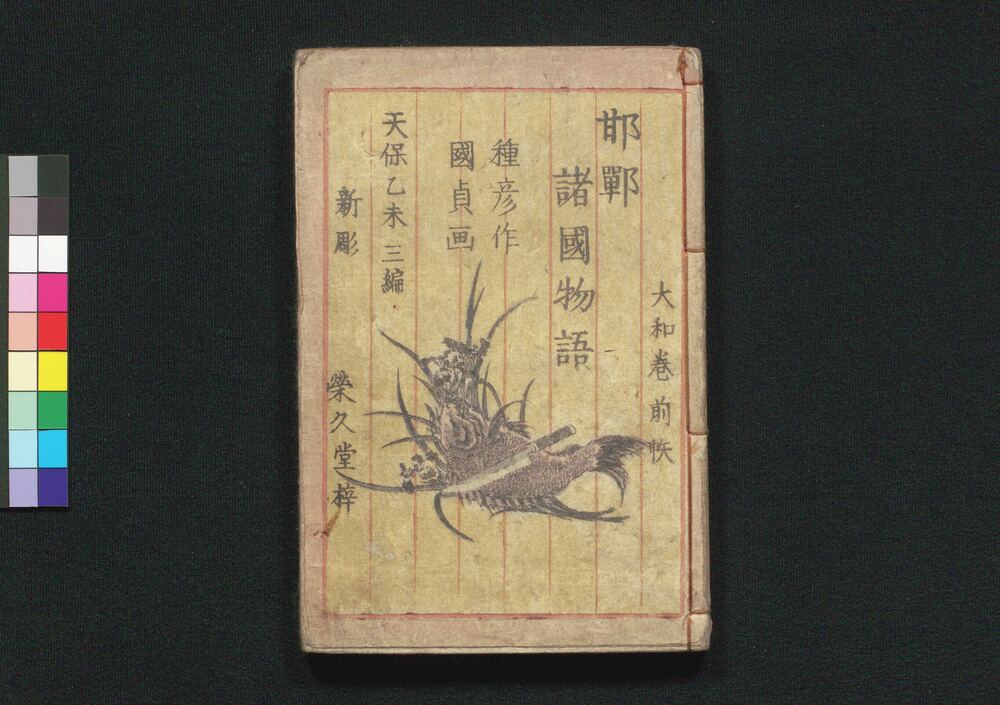 大和巻前帙
邯鄲
諸國物語
種彦作
國貞画
天保乙未三編
新彫
榮久堂梓